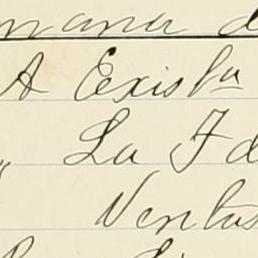 mana d
A Exist.ia
" La I d
Ventas